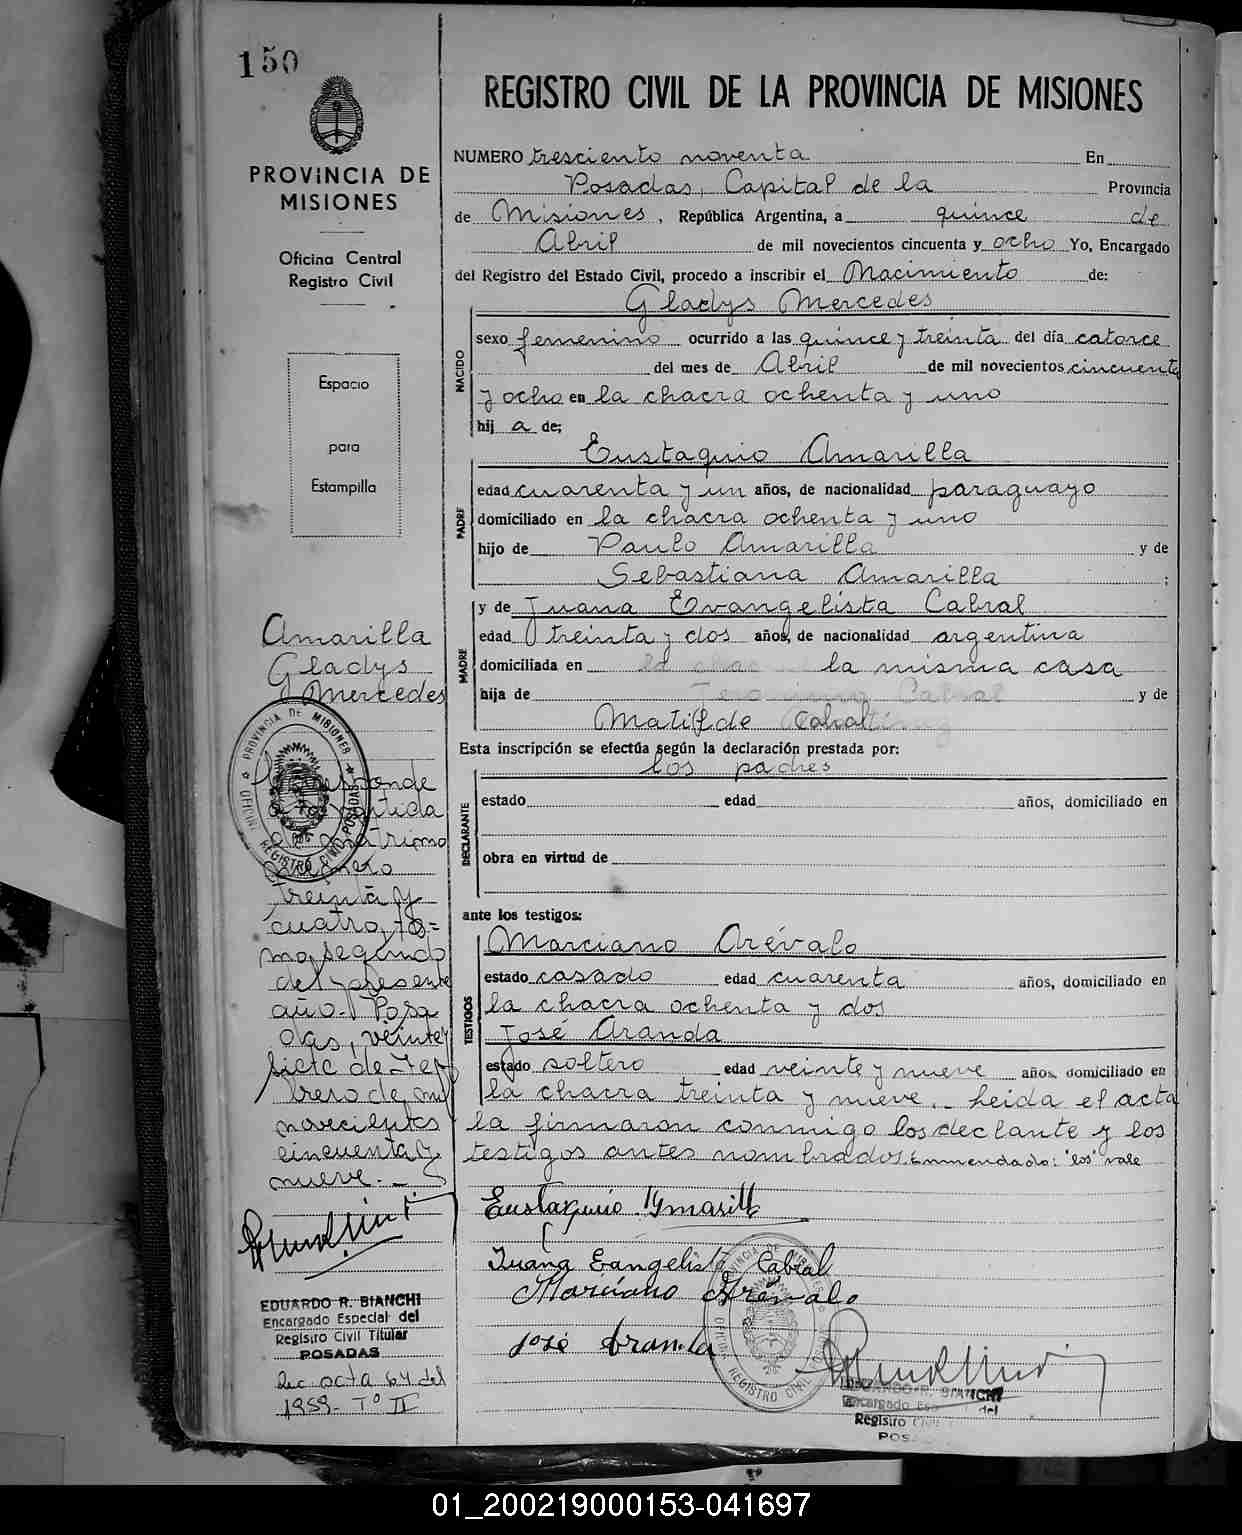 150
PROVINCIA DE
MISIONES
Oficina Central
Registro Civil
Espacio
para
Estampilla
Amarilla
Gladys
Mercedes
OFICINA REGISTRO CIVIL POSADAS PROVINCIA DE MISIONES
treinta y
cuatro, to=
mo, segundo
del presente
año.- Posa
das, veinte
siete de Fe
brero de mil
novecientos
cincuenta y
nueve.-
EDUARDO R. BIANCHI
Encargado Especial del
Registro Civil Titular
POSADAS
Rec. acta 64 del
1959- Tº II
REGISTRO CIVIL DE LA PROVINCIA DE MISIONES
NUMERO tresciento noventa En
Posadas, Capital de la Provincia
de Misiones, República Argentina, a quince de
Abril de mil novecientos cincuenta y ocho Yo, Encargado
del Registro del Estado Civil, procedo a inscribir el Nacimiento de:
Gladys Mercedes
NACIDO
sexo femenino ocurrido a las quince y treinta del día catorce
del mes de Abril de mil novecientos cincuenta
y ocho en la chacra ochenta y uno
hij a de;
Eustaquio Amarilla
PADRE
edad cuarenta y un años, de nacionalidad paraguayo
domiciliado en la chacra ochenta y uno
hijo de Paulo Amarilla y de
Sebastiana Amarilla ;
y de Juana Evangelista Cabral
MADRE
edad treinta y dos años, de nacionalidad argentina
domiciliada en la misma casa
hija de y de
Matilde Cabral
Esta inscripción se efectúa según la declaración prestada por:
los padres
DECLARANTE
estado edad años, domiciliado en
obra en virtud de
ante los testigos:
Marciano Arévalo
TESTIGOS
estado casado edad cuarenta años, domiciliado en
la chacra ochenta y dos
José Aranda
estado soltero edad veinte y nueve años, domiciliado en
la chacra treinta y nueve.- Leida el acta
la firmaron conmigo los declante y los
testigos antes nombrados. Emmendado: "los" vale
Eustaquio Amarilla
Juana Evangelista Cabral
Marciano Arévalo
José Aranda
EDUARDO R. BIANCHI
Encargado Esp del
Registro Civil
POSADAS
01_200219000153-041697